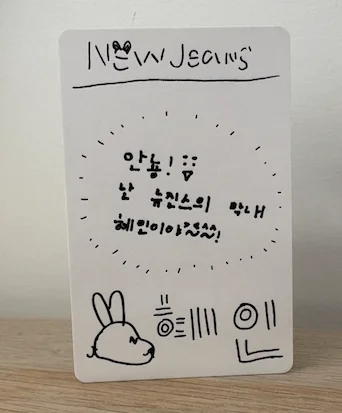 NEW JEANS
안뇽!
난 뉴진스의 막내
혜인이야~~~!
혜인